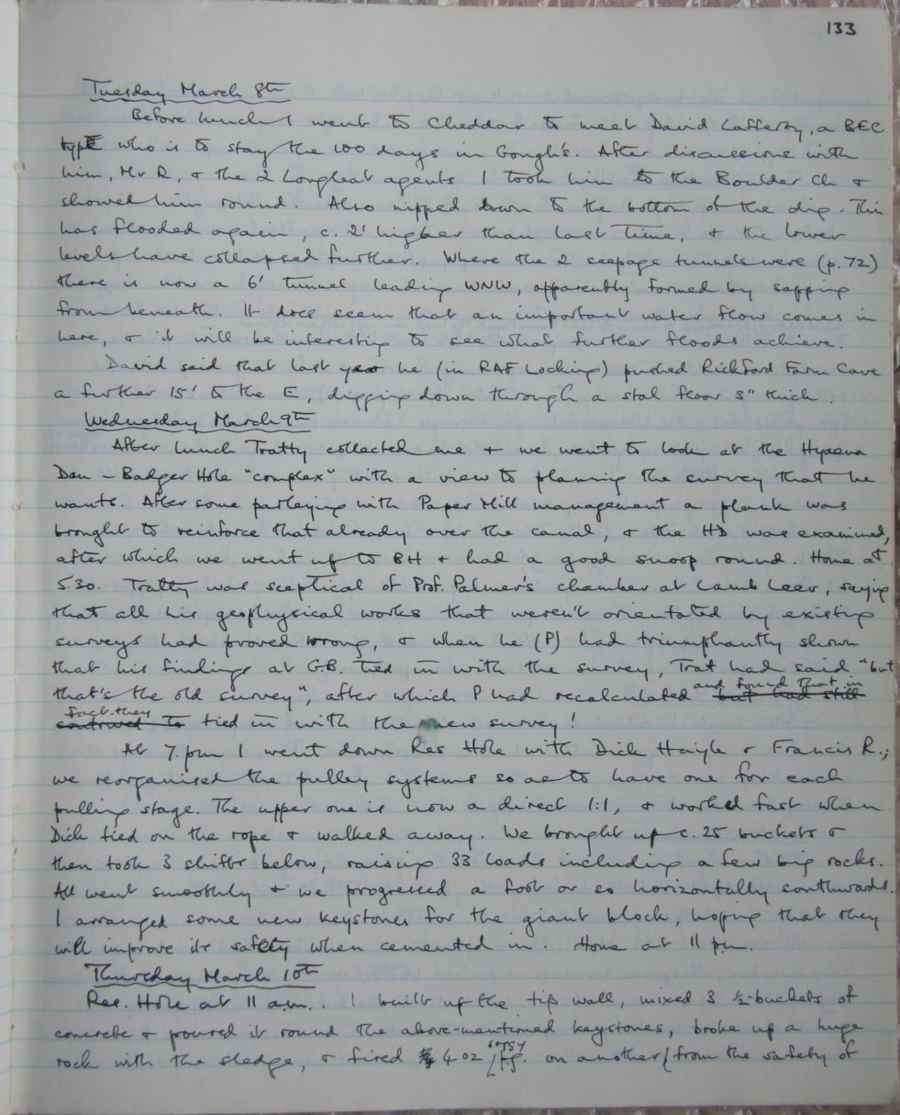 133
Tuesday March 8th
Before lunch I went to Cheddar to meet David Lafferty, a BEC
type who is to stay the 100 days in Gough's. After discussions with
him, Mr R, & the 2 Longleat agents I took him to the Boulder Ch &
showed him round. Also nipped down to the bottom of the dig. This
has flooded again, c. 2' higher than last time, & the lower
levels have collapsed further. Where the 2 seepage tunnels were (p.72)
there is now a 6' tunnel leading WNW, apparently formed by sapping
from beneath. It does seem that an important water flow comes in
here, & it will be interesting to see what further floods achieve.
David said that last year he (in RAF Locking) pushed Rickford Farm Cave
a further 15' to the E, digging down through a stal floor 3" thick.
Wednesday March 9th
After lunch Tratty collected me & we went to look at the Hyaena
Den - Badger Hole "complex" with a view to planning the survey that he
wants. After some parleying with Paper Mill management a plank was
brought to reinforce that already over the canal, & the HD was examined,
after which we went up to BH & had a good snoop round. Home at
5.30. Tratty was sceptical of Prof. Palmer's chamber at Lamb Leer, saying
that all his geophysical works that weren't orientated by existing
surveys had proved wrong, & when he (P) had triumphantly shown
that his findings at GB. tied in with the survey, Trat had said "but
that's the old survey", after which P had recalculated and found that in but had still
fact they contrived to tied in with the new survey!
At 7.pm I went down Res Hole with Dick Hayle & Francis R.;
we reorganised the pulley systems so as to have one for each
pulling stage. The upper one is now a direct 1:1, & worked fast when
Dick tied on the rope & walked away. We brought up c. 25 buckets &
then took 3 shifts below, raising 33 loads including a few big rocks.
All went smoothly & we progressed a foot or so horizontally southwards.
I arranged some new keystones for the giant block, hoping that they
will improve its safety when cemented in. Home at 11 pm.
Thursday March 10th
Res. Hole at 11 a.m.. I built up the tip wall, mixed 3 ½-buckets of
concrete & poured it round the above-mentioned keystones, broke up a huge
rock with the sledge, & fired 4 oz on another (from the safety of